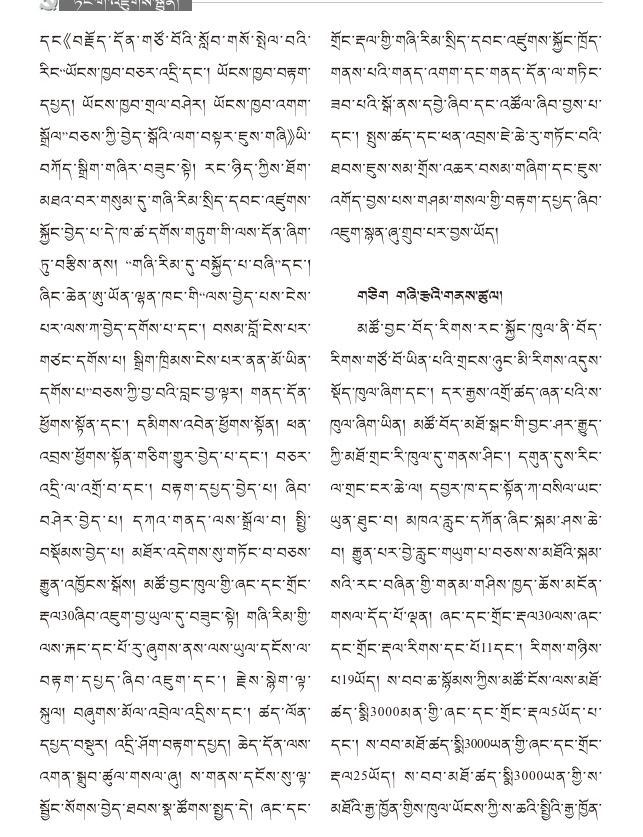 དང《བརྗོད་དོན་གཙོ་བོའི་སློབ་གསོ་སྤེལ་བའི་
རིང“ཡོངས་ཁྱབ་བཅར་འདྲི་དང་། ཡོངས་ཁྱབ་བརྟག་
དཔྱད། ཡོངས་ཁྱབ་གྲལ་བཤེར། ཡོངས་ཁྱབ་འགག་
སྒྲོལ”བཅས་ཀྱི་བྱེད་སྒོའི་ལག་བསྟར་ཇུས་གཞི》ཡི་
བཀོད་སྒྲིག་གཞིར་བཟུང་སྟེ། རང་ཉིད་ཀྱིས་ཐོག་
མཐའ་བར་གསུམ་དུ་གཞི་རིམ་སྲིད་དབང་འཛུགས་
སྐྱོང་བྱེད་པ་དེ་ཁ་ཚ་དགོས་གཏུག་གི་ལས་དོན་ཞིག་
ཏུ་བརྩིས་ནས། “གཞི་རིམ་དུ་བསྐྱོད་པ་བཞི”དང་།
ཞིང་ཆེན་ཨུ་ཡོན་ལྷན་ཁང་གི“ལས་བྱེད་པས་ངེས་
པར་ལས་ཀ་བྱེད་དགོས་པ་དང་། བསམ་བློ་ངེས་པར་
གཙང་དགོས་པ། སྒྲིག་ཁྲིམས་ངེས་པར་ནན་མོ་ཡིན་
དགོས་པ”བཅས་ཀྱི་བྱ་བའི་བླང་བྱ་ལྟར། གནད་དོན་
ཕྱོགས་སྟོན་དང་། དམིགས་འབེན་ཕྱོགས་སྟོན། ཕན་
འབྲས་ཕྱོགས་སྟོན་གཅིག་གྱུར་བྱེད་པ་དང་། བཅར་
འདྲི་ལ་འགྲོ་བ་དང་། བརྟག་དཔྱད་བྱེད་པ། ཞིབ་
བཤེར་བྱེད་པ། དཀའ་གནད་ལས་སྒྲོལ་བ། སྤྱི་
བསྡོམས་བྱེད་པ། མཐོར་འདེགས་སུ་གཏོང་བ་བཅས་
རྒྱུན་འཁྱོངས་སྒོས། མཚོ་བྱང་ཁུལ་གྱི་ཞང་དང་གྲོང་
རྡལ30ཞིབ་འཇུག་བྱ་ཡུལ་དུ་བཟུང་སྟེ། གཞི་རིམ་གྱི་
ལས་རྐང་དང་པོ་རུ་ཞུགས་ནས་ལས་ཡུལ་དངོས་ལ་
བརྟག་དཔྱད་ཞིབ་འཇུག་དང་། རྗེས་སྙེག་ལྟ་
སྐུལ། བཞུགས་མོལ་འབྲེལ་འདྲིས་དང་། ཚད་ལོན་
དཔྱད་བསྡུར། འདྲི་ཤོག་བརྟག་དཔྱད། ཆེད་དོན་ལས་
འགན་སྒྲུབ་ཚུལ་གསལ་ཞུ། ས་གནས་དངོས་སུ་ལྟ་
སྦྱོང་སོགས་བྱེད་ཐབས་སྣ་ཚོགས་སྤྱད་དེ། ཞང་དང་
གྲོང་རྡལ་གྱི་གཞི་རིམ་སྲིད་དབང་འཛུགས་སྐྱོང་ཁྲོད་
གནས་པའི་གནད་འགག་དང་གནད་དོན་ལ་གཏིང་
ཟབ་པའི་སྒོ་ནས་དབྱེ་ཞིབ་དང་འཚོལ་ཞིབ་བྱས་པ་
དང་། སྤུས་ཚད་དང་ཕན་འབྲས་ཇེ་ཆེ་རུ་གཏོང་བའི་
ཐབས་ཇུས་སམ་གྲོས་འཆར་བསམ་གཞིག་དང་ཇུས་
འགོད་བྱས་པས་གཤམ་གསལ་གྱི་བརྟག་དཔྱད་ཞིབ་
འཇུག་སྙན་ཞུ་གྲུབ་པར་བྱས་ཡོད།
གཅིག གཞི་རྩའི་གནས་ཚུལ།
མཚོ་བྱང་བོད་རིགས་རང་སྐྱོང་ཁུལ་ནི་བོད་
རིགས་གཙོ་བོ་ཡིན་པའི་གྲངས་ཉུང་མི་རིགས་འདུས་
སྡོད་ཁུལ་ཞིག་དང་། དར་རྒྱས་འགྲོ་ཚད་ཞན་པའི་ས་
ཁུལ་ཞིག་ཡིན། མཚོ་བོད་མཐོ་སྒང་གི་བྱང་ཤར་རྒྱུད་
ཀྱི་མཐོ་གྲང་རི་ཁུལ་དུ་གནས་ཤིང་། དགུན་དུས་རིང་
ལ་གྲང་ངར་ཆེ་ལ། དབྱར་ཁ་དང་སྟོན་ཀ་བསིལ་ཡང་
ཡུན་ཐུང་བ། མཁའ་རླུང་དཀོན་ཞིང་སྐམ་ཤས་ཆེ་
བ། རྒྱུན་པར་བྱེ་རླུང་གཡུག་པ་བཅས་ས་མཐོའི་སྐམ་
སའི་རང་བཞིན་གྱི་གནམ་གཤིས་ཁྱད་ཆོས་མངོན་
གསལ་དོད་པོ་ལྡན། ཞང་དང་གྲོང་རྡལ30ལས་ཞང་
དང་གྲོང་རྡལ་རིགས་དང་པོ11དང་། རིགས་གཉིས་
པ19ཡོད། ས་བབ་ཆ་སྙོམས་ཀྱིས་མཚོ་ངོས་ལས་མཐོ་
ཚད་སྨི3000མན་གྱི་ཞང་དང་གྲོང་རྡལ5ཡོད་པ་
དང་། ས་བབ་མཐོ་ཚད་སྨི3000ཡན་གྱི་ཞང་དང་གྲོང་
རྡལ25ཡོད། ས་བབ་མཐོ་ཚད་སྨི3000ཡན་གྱི་ས་
མཐོའི་རྒྱ་ཁྱོན་གྱིས་ཁུལ་ཡོངས་ཀྱི་ས་ཆའི་སྤྱིའི་རྒྱ་ཁྱོན་